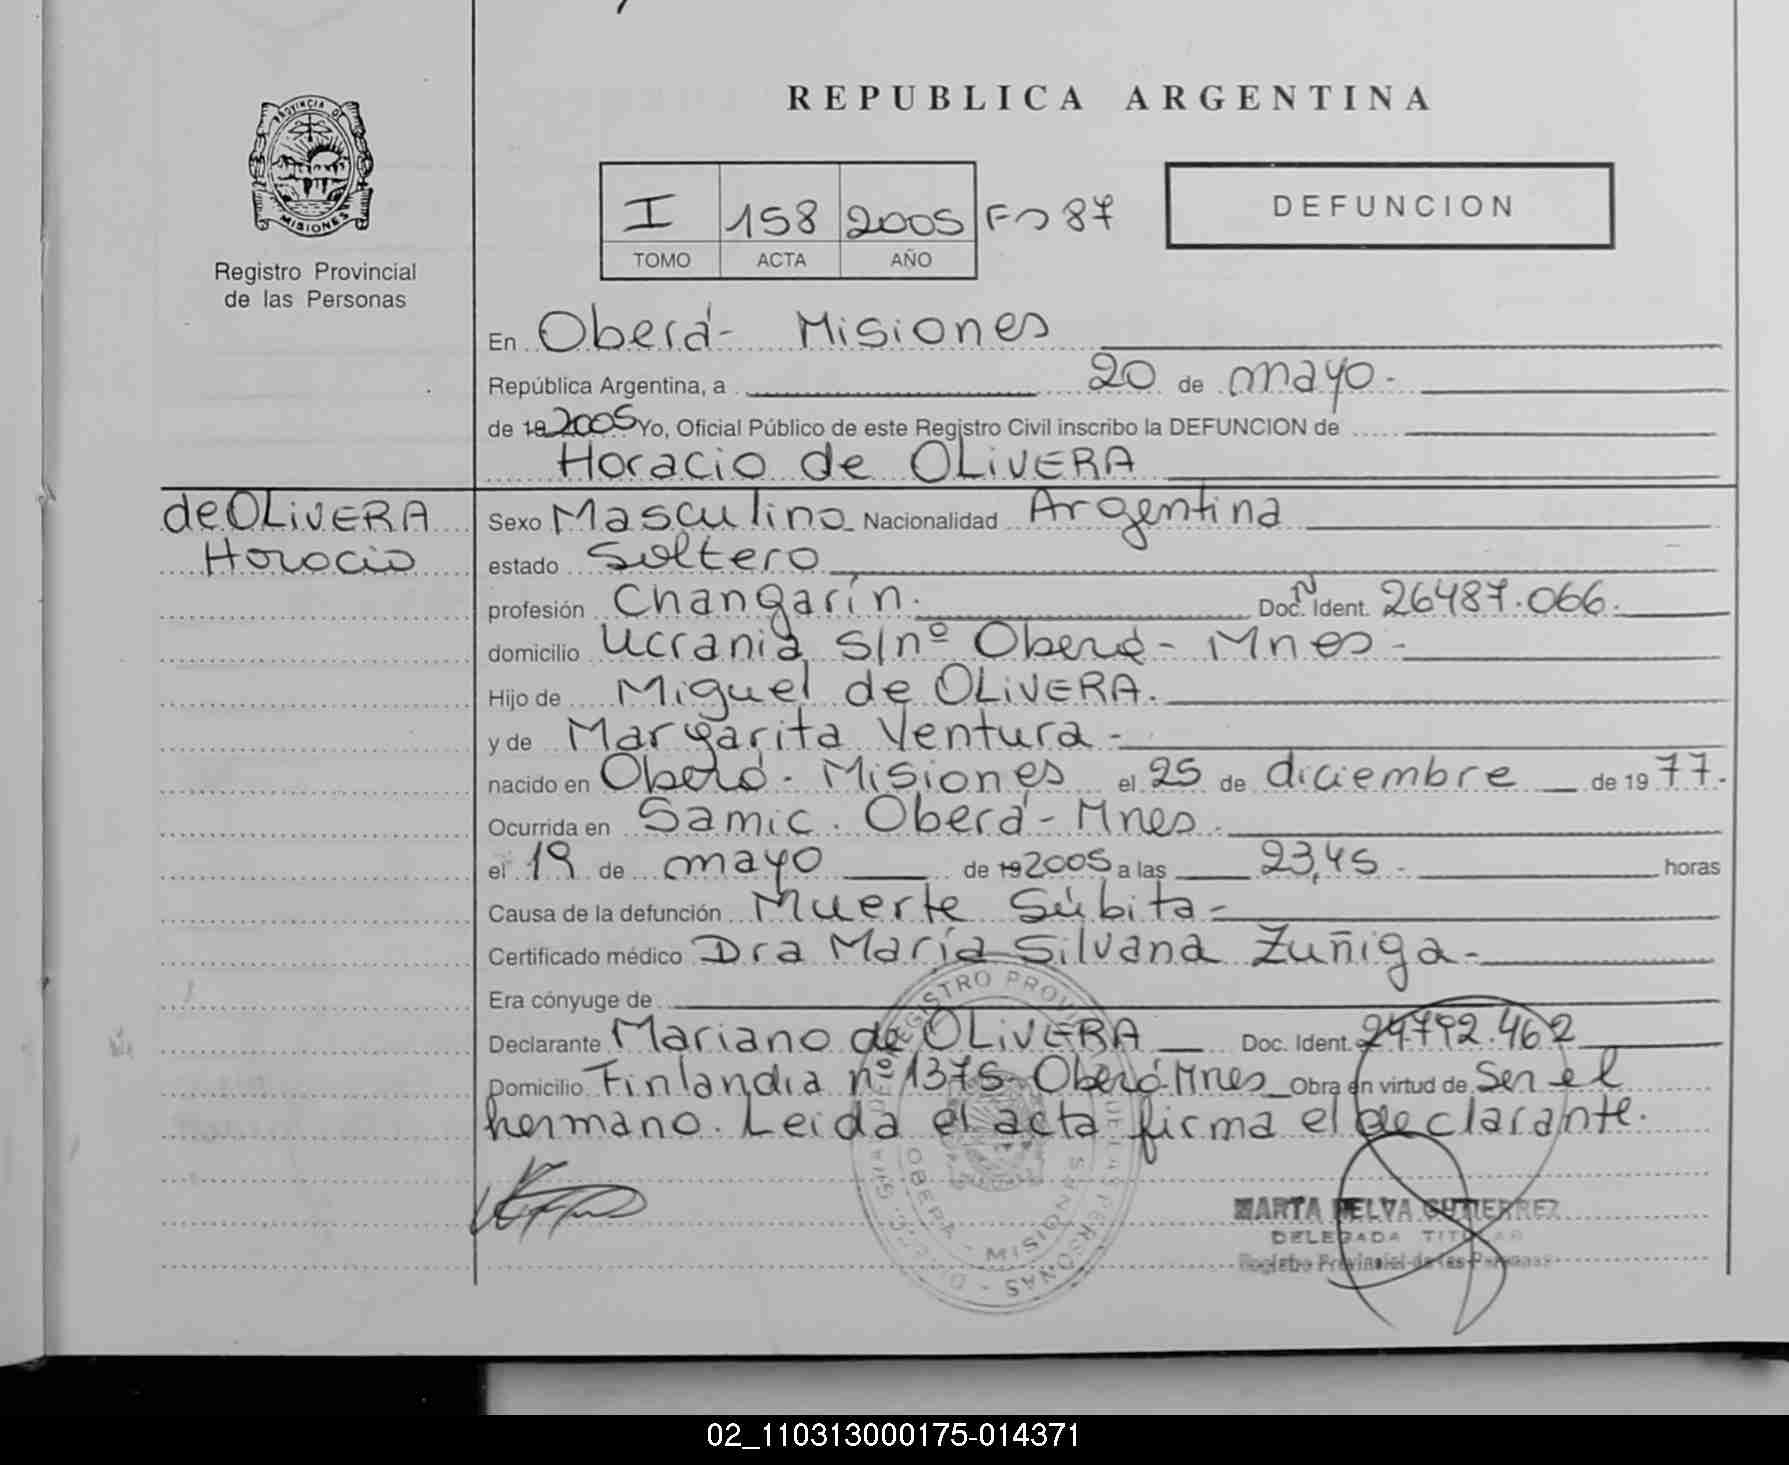 REPUBLICA ARGENTINA
PROVINCIA DE
MISIONES
Registro Provincial
de las Personas
I 158 2005 Fo 87
TOMO ACTA AÑO
DEFUNCION
En Oberá- Misiones
República Argentina, a 20 de mayo.
de 19 2005 Yo, Oficial Público de este Registro Civil inscribo la DEFUNCION de
Horacio de OLiVERA
de OLiVERA
Horacio
Sexo Masculino Nacionalidad Argentina
estado Soltero
profesión Changarín. Doc. N Ident. 26487.066.
domicilio Ucrania S/nº Oberá- Mnes-
Hijo de Miguel de OLiVERA.
y de Margarita Ventura-
nacido en Oberá- Misiones el 25 de diciembre de 1977.
Ocurrida en Samic. Oberá- Mnes.
el 19 de mayo de 19 2005 a las 23,45.- horas
Causa de la defunción Muerte Súbita-
Certificado médico Dra María Silvana Zuñiga-
Era cónyuge de
Declarante Mariano de OLiVERA Doc. Ident. 24792.462
Domicilio Finlandia nº 1375 Oberá-Mnes Obra en virtud de Ser el
hermano. Leida el acta firma el declarante.
OBERA - MISIONES
MARTA NELVA GUTIERREZ
DELEGADA TITULAR
Registro Provincial de las Personas
02_110313000175-014371